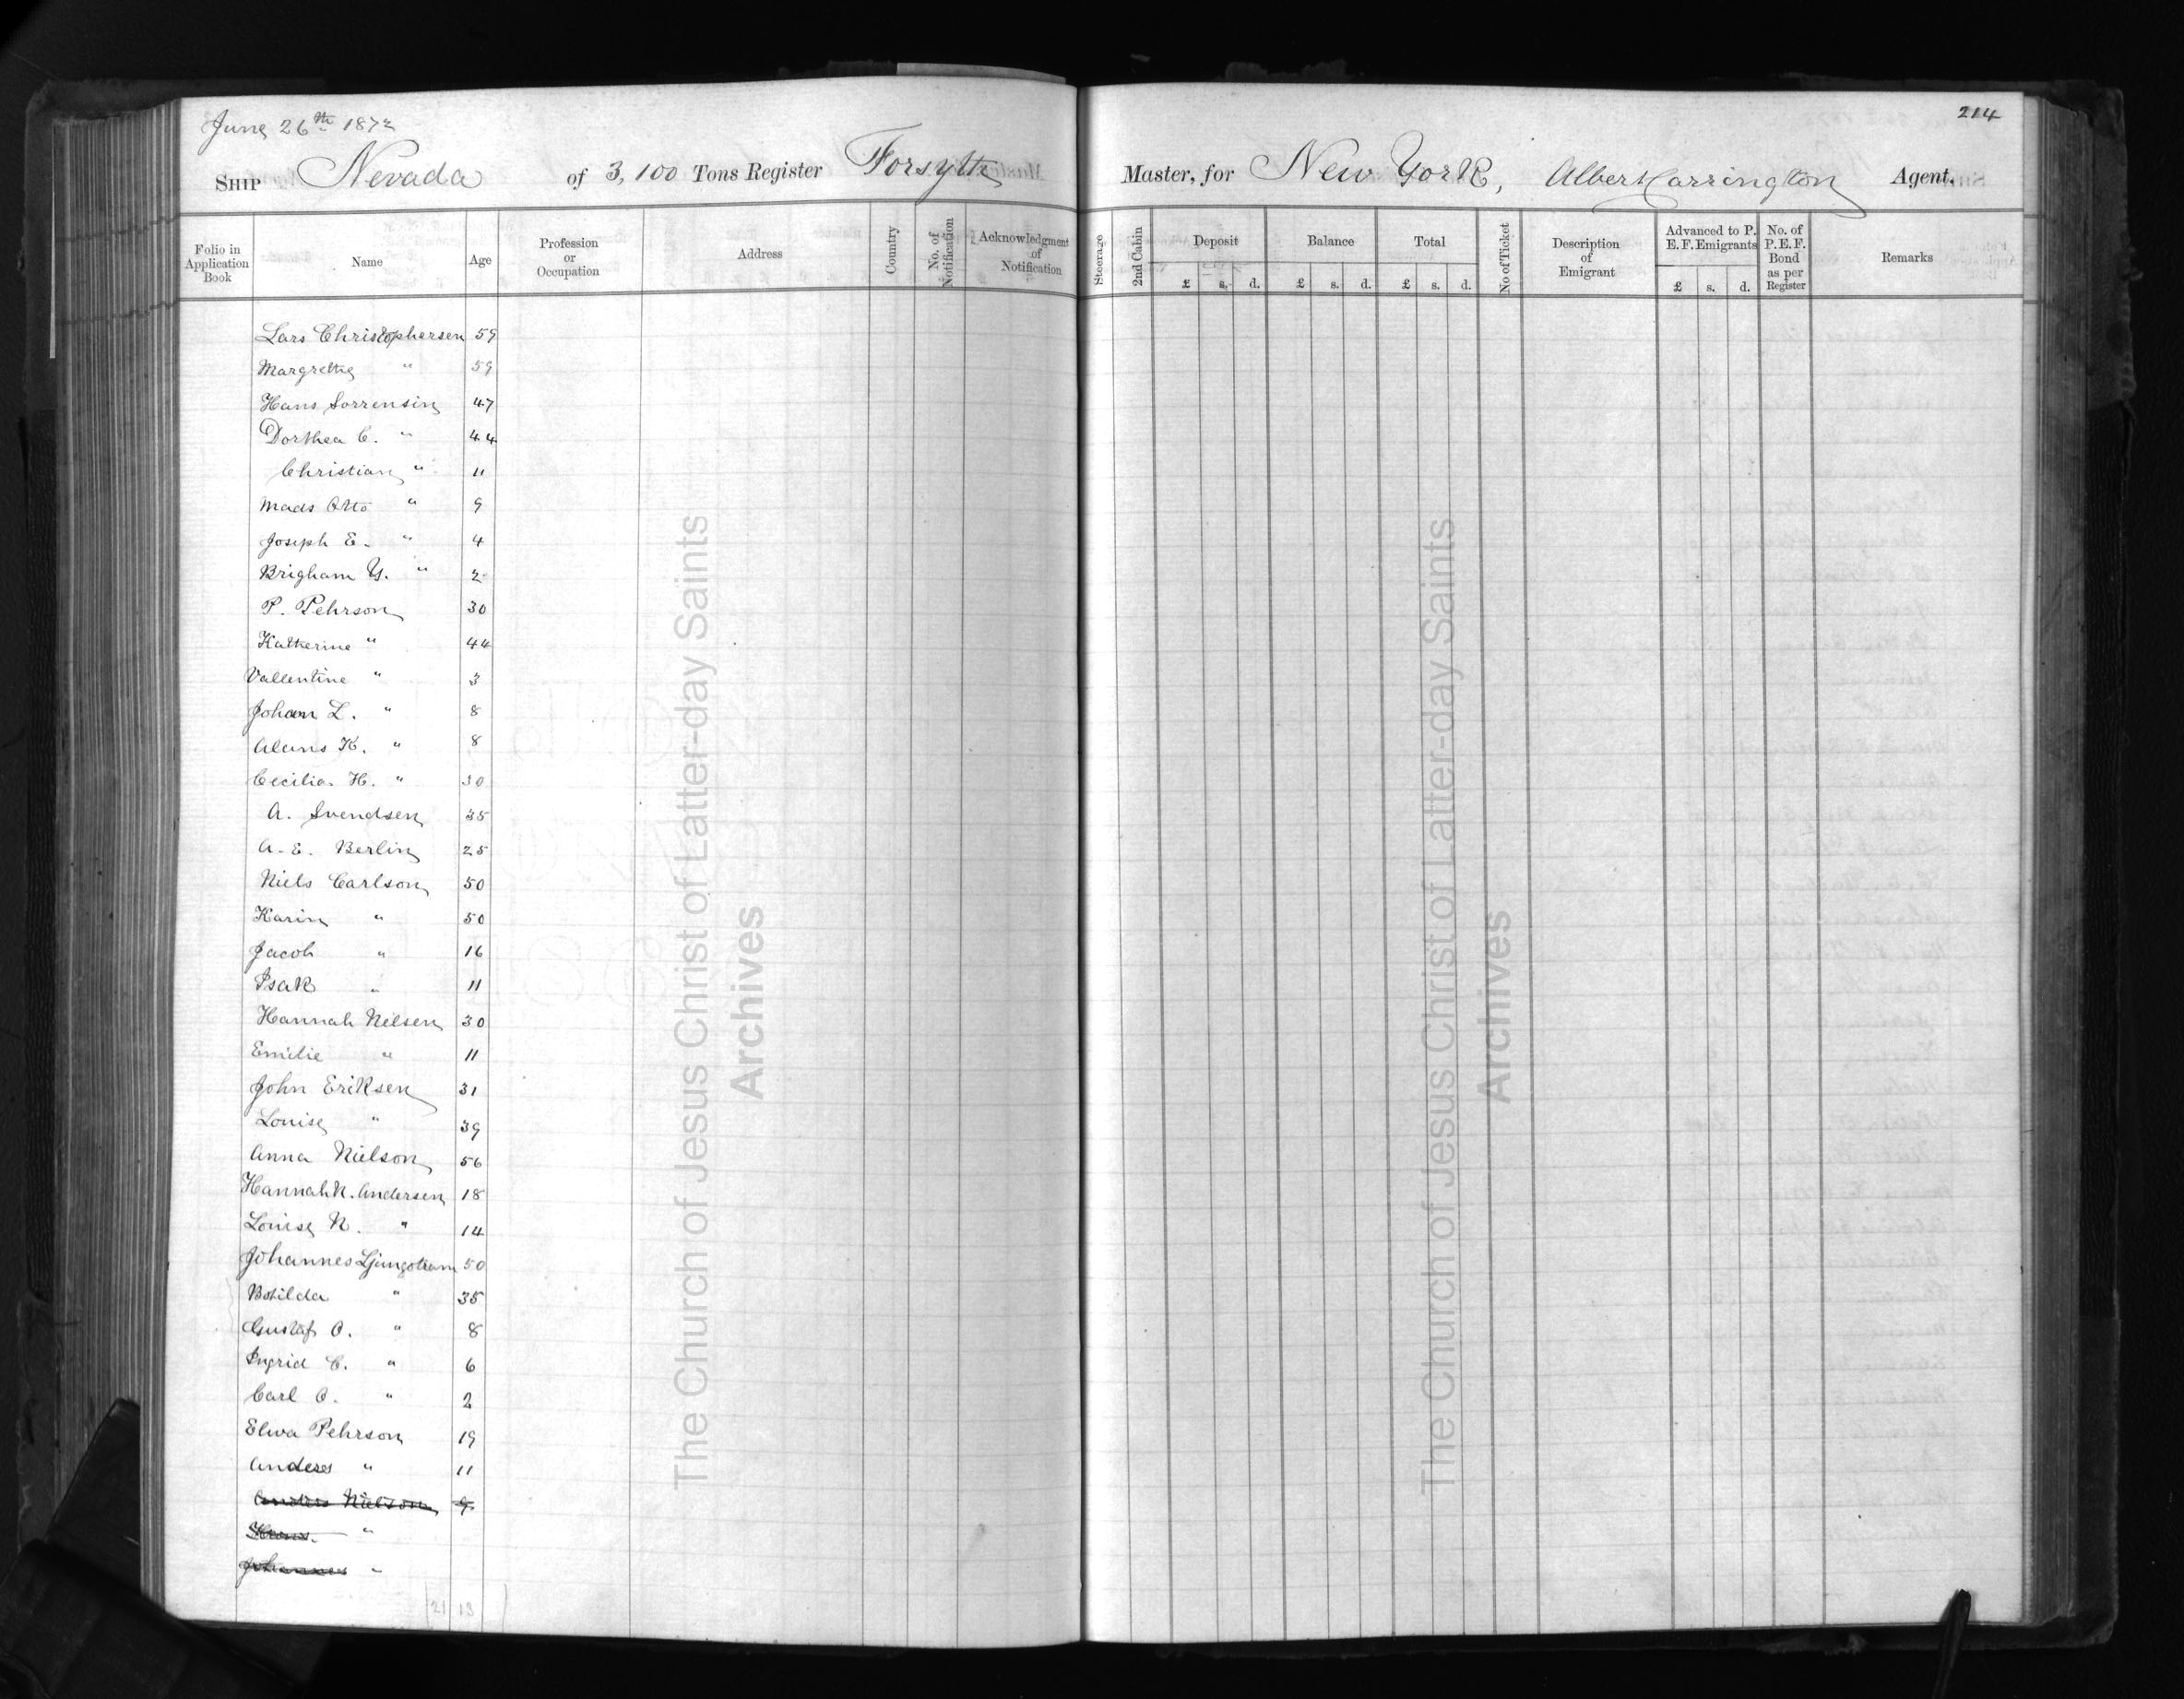 June 26th 1872
214
Ship Nevada of 3,100 Tons Register Forsyth Master, for New York, Albert Carrington Agent.
Folio in Application Book Name Age Profession or Occupation Address Country No. of Notification Acknowledgment of Notification Steerage 2nd Cabin Deposit Balance Total No of Ticket Description of Emigrant Advanced to P. E. F. Emigrants No. of P.E.F. Bond as per Register Remarks
£ s. d. £ s. d. £ s. d. £ s. d.
Lars Christophersen 59
Margrethe " 59
Hans Sorrensin 47
Dorthea C. " 44
Christian " 11
Mads Otto " 9
Joseph E. " 4
Brigham Y. " 2
P. Pehrson 30
Katherine " 44
Vallentine " 3
Johan L. " 8
K. " 8
Cecilia H. " 30
A. Svendsen 35
A. E. Berlin 25
Niels Carlson 50
Karin " 50
Jacob " 16
Isak " 11
Hannah Nilsen 30
Emilie " 11
John Eriksen 31
Louise " 39
Anna Nielson 56
Hannah N. Andersen 18
Louise N. " 14
Johannes 50
Botilda " 35
Gustaf O. " 8
Ingrid C. " 6
Carl O. " 2
Elna Pehrson 19
Anders " 11
Anders Nielson 9
"
Johannes "
21 13
The Church of Jesus Christ of Latter-day Saints
Archives
The Church of Jesus Christ of Latter-day Saints
Archives